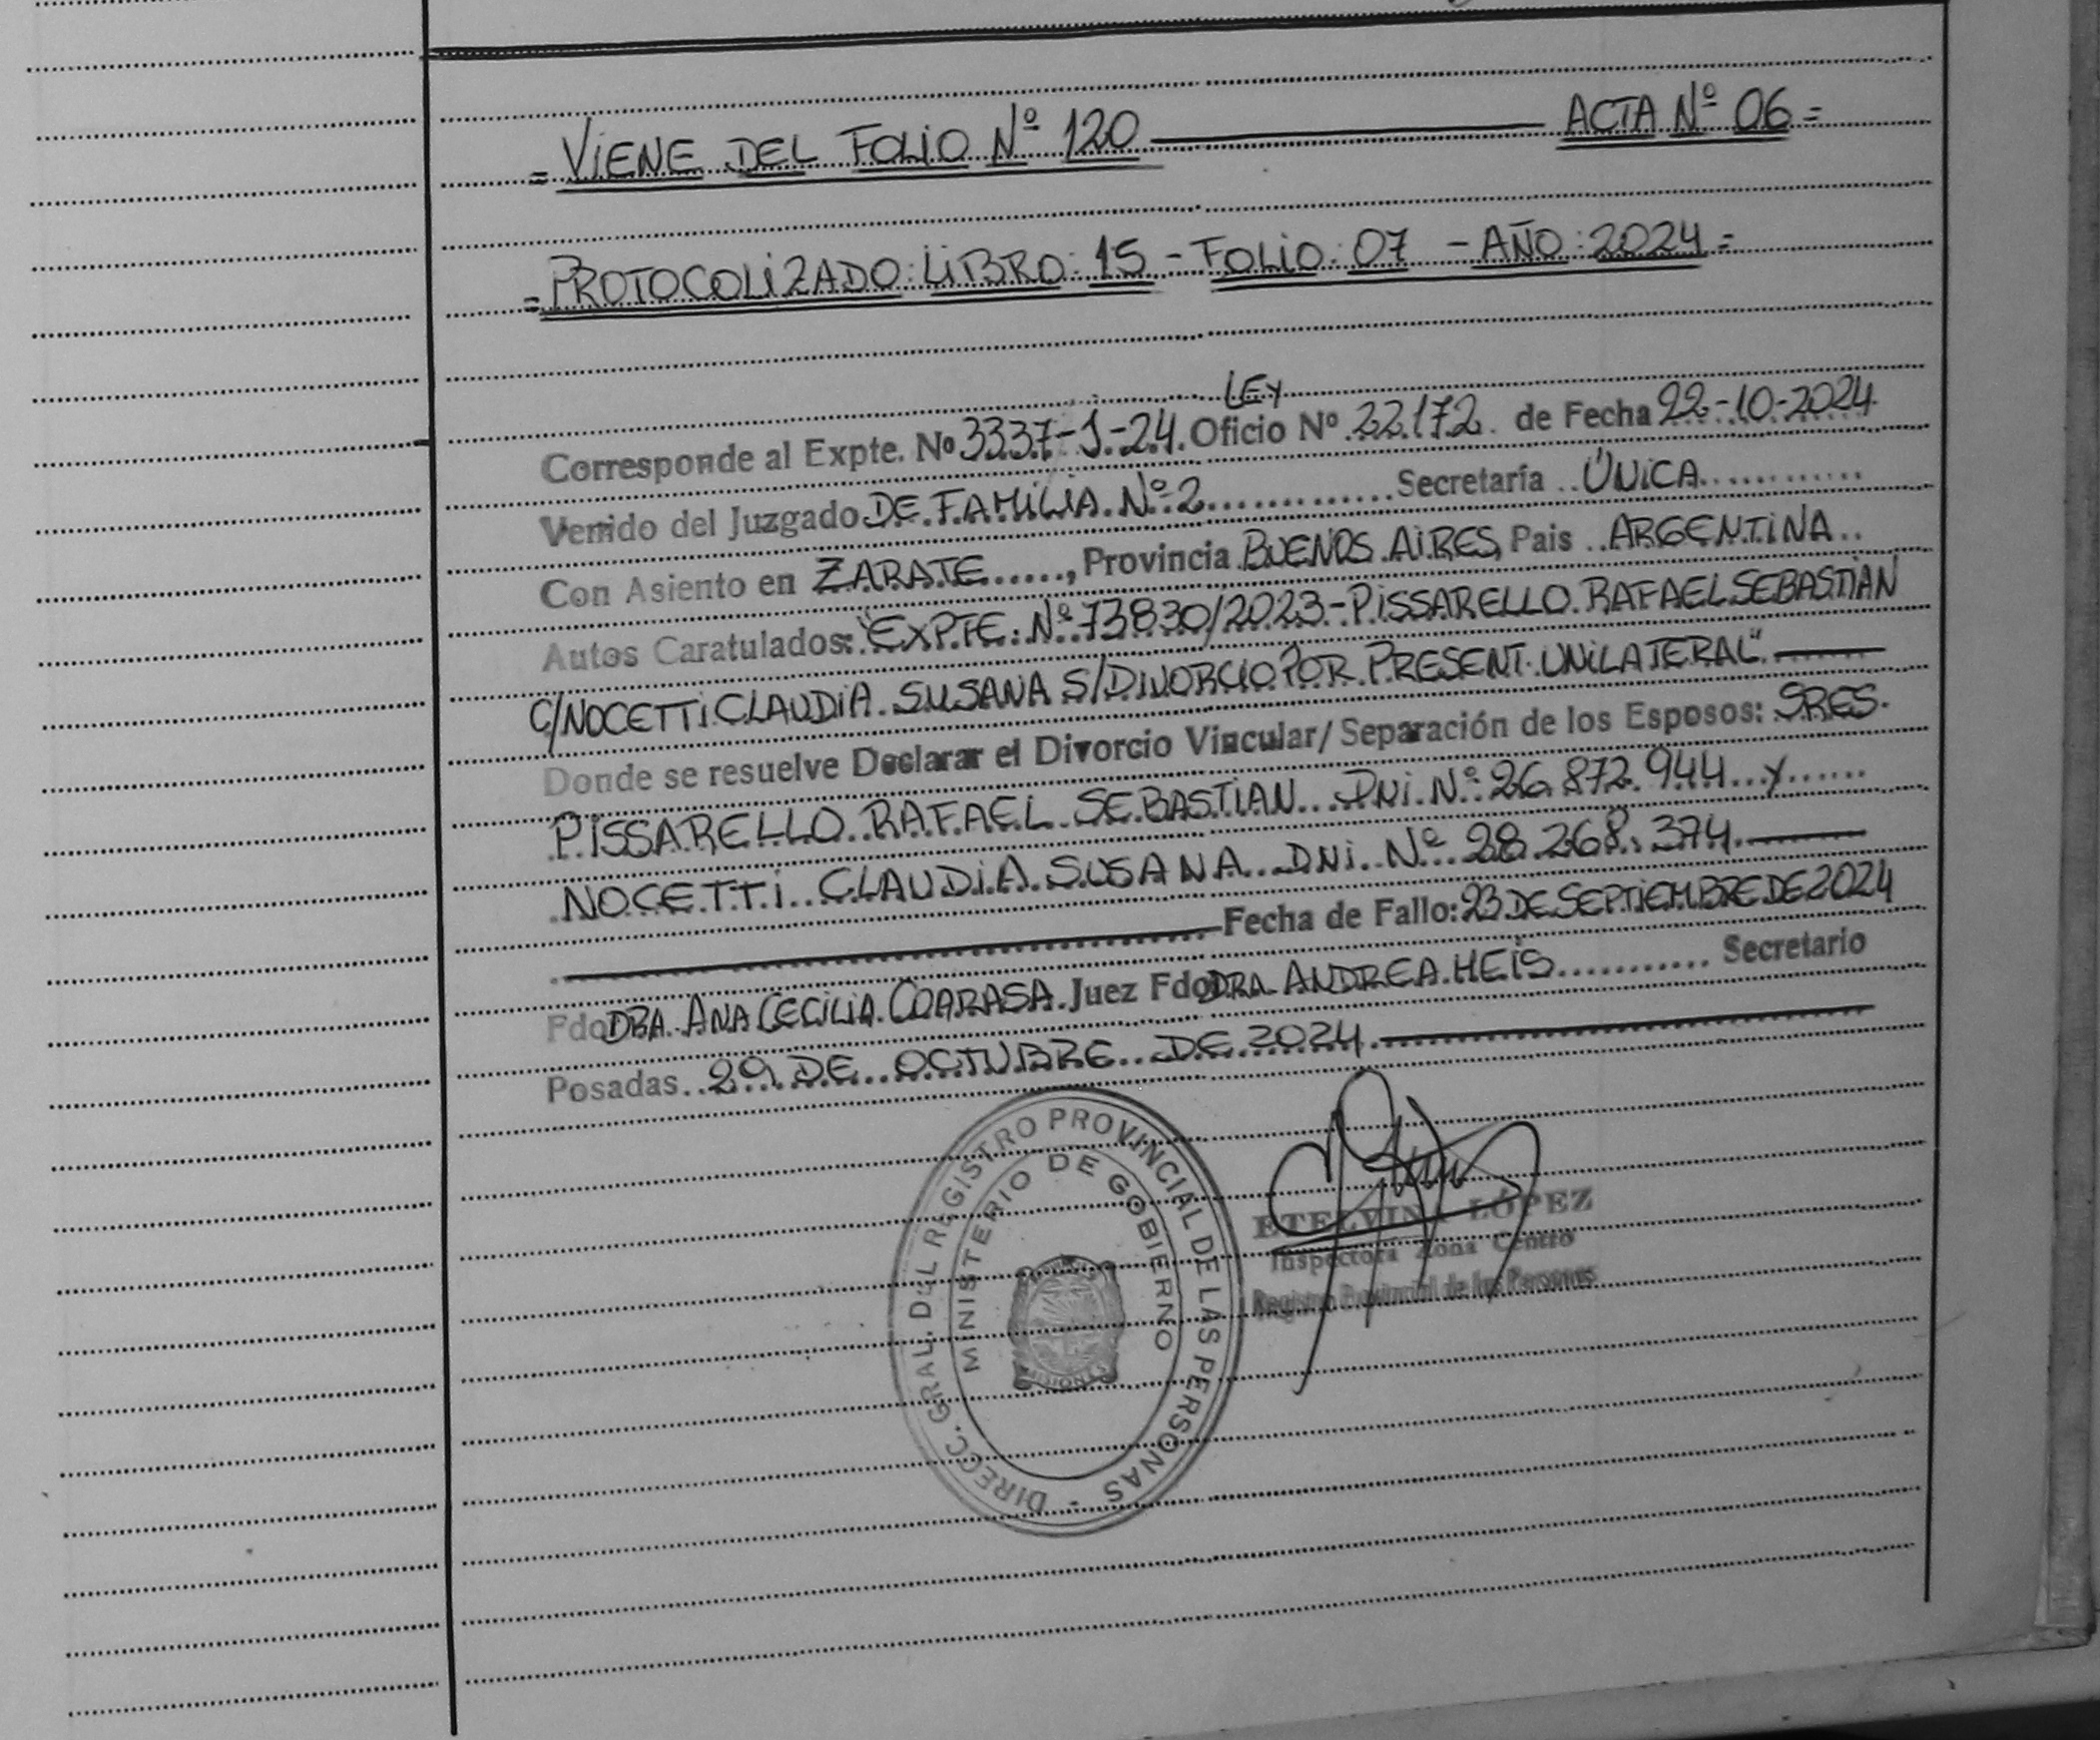 = VIENE DEL FOLIO Nº 120 ——— ACTA Nº 06 =
= PROTOCOLIZADO: LIBRO: 15 - FOLIO: 07 - AÑO: 2024 =
LEY
Corresponde al Expte. Nº 3337-J-24. Oficio Nº 22.172. de Fecha 22-10-2024
Venido del Juzgado DE FAMILIA Nº 2 ............ Secretaría ..ÚNICA...........
Con Asiento en ZARATE......, Provincia BUENOS AIRES, Pais ..ARGENTINA..
Autos Caratulados: "EXPTE: Nº 73830/2023-PISSARELLO RAFAEL SEBASTIAN
C/NOCETTI CLAUDIA SUSANA S/DIVORCIO POR PRESENT. UNILATERAL" ———
Donde se resuelve Declarar el Divorcio Vincular/Separación de los Esposos: SRES.
PISSARELLO RAFAEL SEBASTIAN DNI Nº 26.872.944 y ......
NOCETTI CLAUDIA SUSANA DNI Nº 28.268.374. ———
——— Fecha de Fallo: 23 DE SEPTIEMBRE DE 2024
Fdo DRA. ANA CECILIA COARASA. Juez Fdo DRA. ANDREA HEIS........... Secretario
Posadas.. 29 DE OCTUBRE DE 2024. ———
DIRECC. GRAL. DEL REGISTRO PROVINCIAL DE LAS PERSONAS -
MINISTERIO DE GOBIERNO
ETELVINA LÓPEZ
Inspectora Zona Centro
Registro Provincial de las Personas